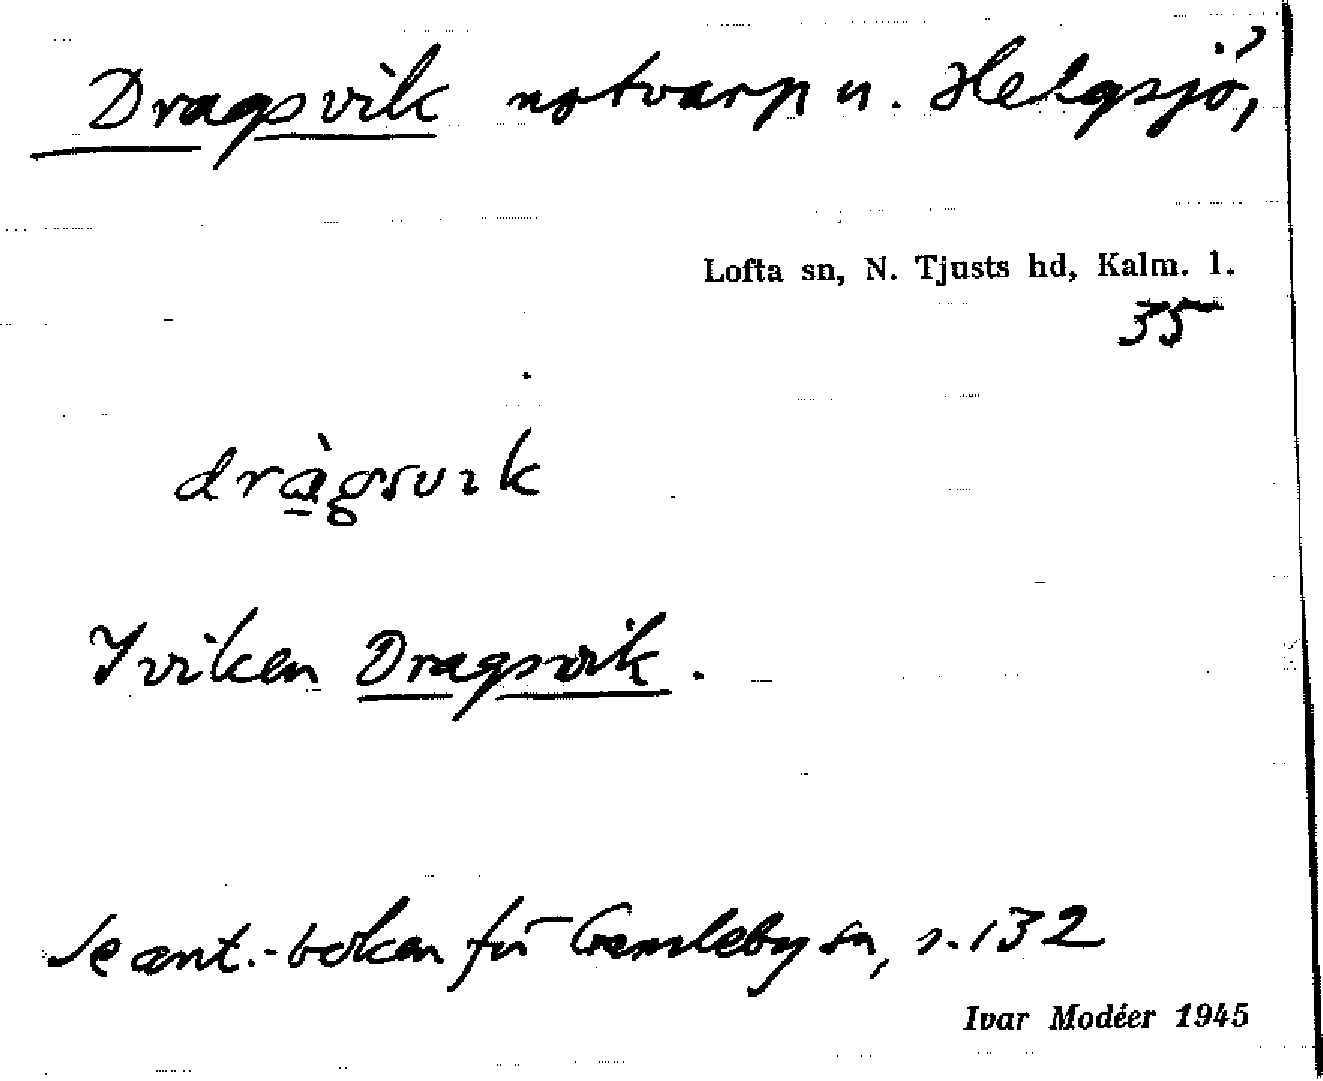 Dragsvik notvarp n. Helgsjö,
Lofta sn, N. Tjusts hd, Kalm. l.
35
dràgsvik
I viken Dragsvik.
Se ant.-boken för Gamleby sn, s. 132
Ivar Modéer 1945